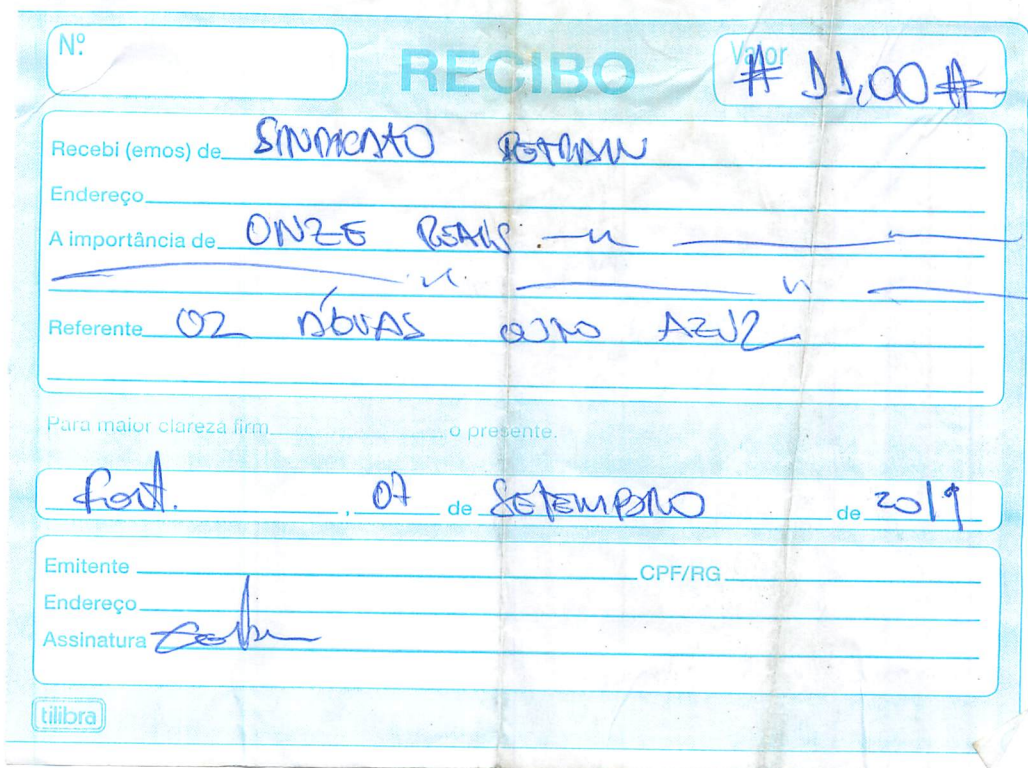 Nº
RECIBO
Valor
# 11,00 #
Recebi (emos) de SINDICATO DETRAN
Endereço
A importância de ONZE REAIS
Referente 02 ÁGUAS AZUL
Para maior clareza firm o presente.
Fort. , 07 de SETEMBRO de 2019
Emitente CPF/RG
Endereço
Assinatura
tilibra